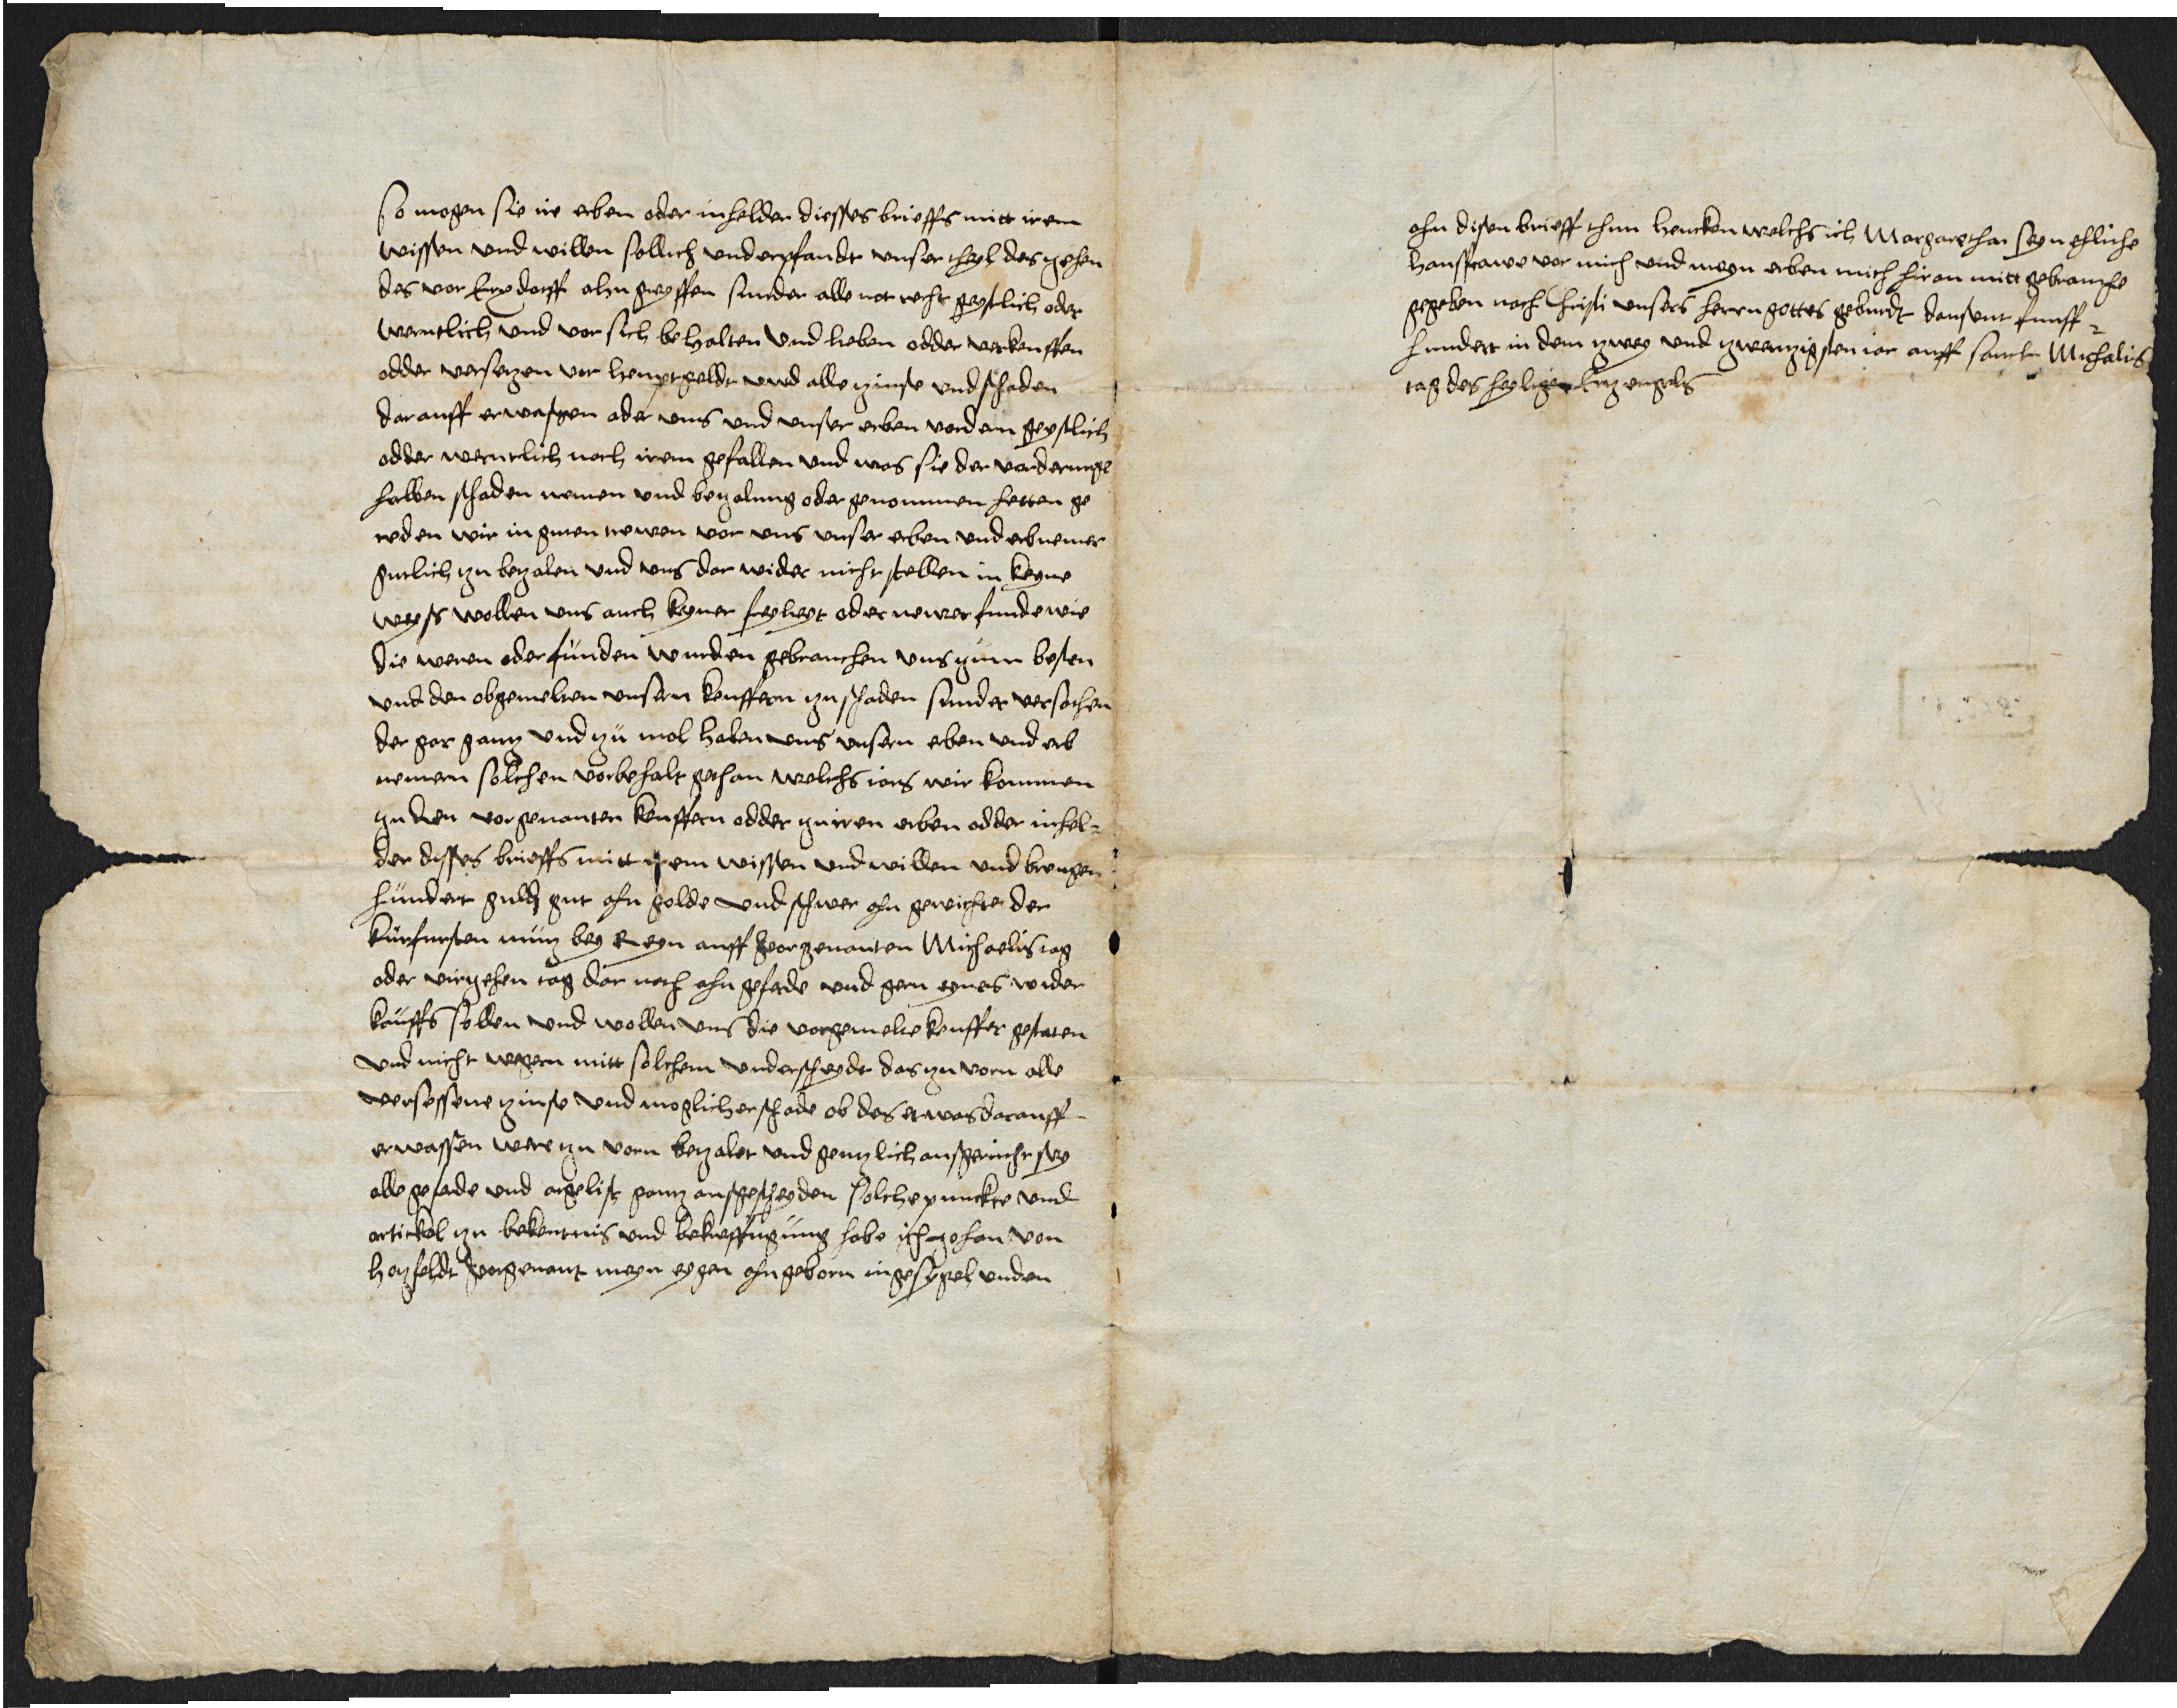 So mogen sie ire erben oder inhelder diesses brieffs mitt irem
wissen und willen sollich underpfandt unser theyl des zehen
des vor Erxdorff ahn greyffen sunder alle not recht geystlich oder
werntlich und vor sich behalten und heben odder verkeuffen
odder versezen vor heuptgeldt und alle zinse und schaden
darauff erwaszen oder uns und unser erben vordern geystlich
odder werntlich noch irem gefallen und was sie der vorderunge
halben schaden nemen und bezalung oder genommen hetten ge
reden wir in guten trewen vor uns unser erben und erbnemer
gutlich zu bezalen und uns dar wider nicht stellen in keyne
weyss wollen uns auch keyner freyheyt oder newer funde wie
die weren oder funden wurden gebrauchen uns zum besten
und den obgemelten unsern keuffern zu schaden sunder versachen
der gar ganz und zu mol haben uns unsern erben und erb
nemern solchen vorbehalt gethan welchs iars wir kommen
zu den vorgenanten keuffern odder zu iren erben odder inhel-
der disses brieffs mitt irem wissen und willen und brengen
hundert guld gut ahn golde und schwer ahn gewichte der
kurfursten munz bey Reyn auff vorgenanten Michaelis tag
oder virzehen tag dar nach ahn geferde und gern eynes wider
kauffs sollen und wollen uns die vorgemelte keuffer gestaten
und nicht wegern mitt solchem underscheydt das zu vorn alle
versessene zinse und moglicher schade ob des etwas darauff
erwassen were zu vorn bezalet und genzlich aussgericht sey
alle geferde und argelist ganz aussgescheyden solche punckte und
artickel zu bekentnis und bekrefftigung habe ich Johan von
Hatzfeldt vorgenant meyn eygen ahngeborn ingesygel unden
ahn disen brieff thun hencken welchs ich Margarethar seyn ehliche
haussfrawe vor mich und meyn erben mich hiran mitt gebrauche
gegeben noch Christi unsers herrn gottes geburdt dausent funff-
hundert in dem zwey und zwenzigsten iar auff sanct Michalis
tag des heyligen Erzengels